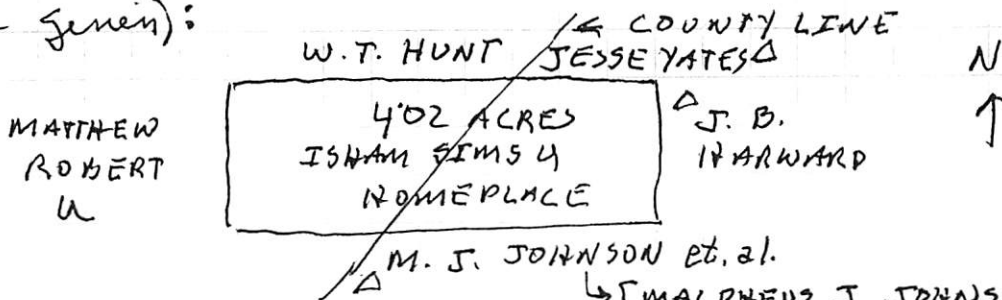 Genen):
← COUNTY LINE
W.T. HUNT JESSE YATES Δ
N
MATTHEW ROBERT U
402 ACRES
ISHAM SIMS U
HOMEPLACE
Δ J. B. HARWARD
Δ M. J. JOHNSON et. al.
↳ [MALPHEUS J. JOHNS